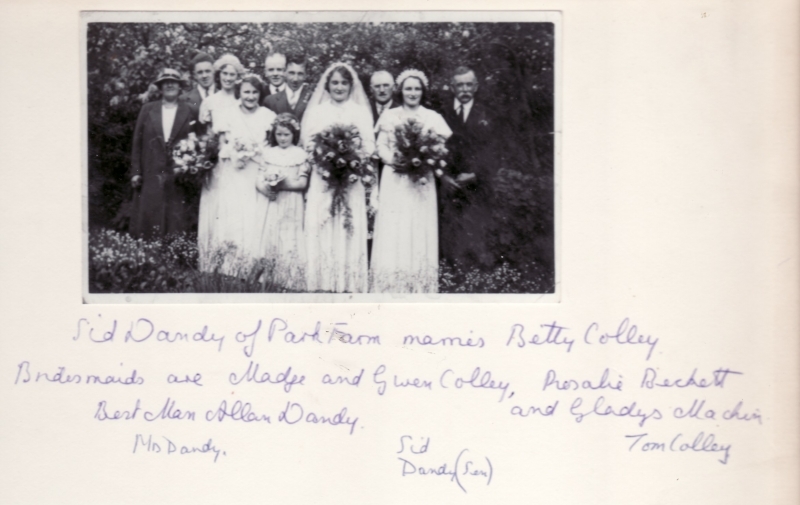 Sid Dandy of Park Farm marries Betty Colley
Bridesmaids are Madge and Gwen Colley, Rosalie Beckett
and Gladys Machin.
Best Man Allan Dandy.
Mrs Dandy.
Sid
Dandy (Sen)
Tom Colley